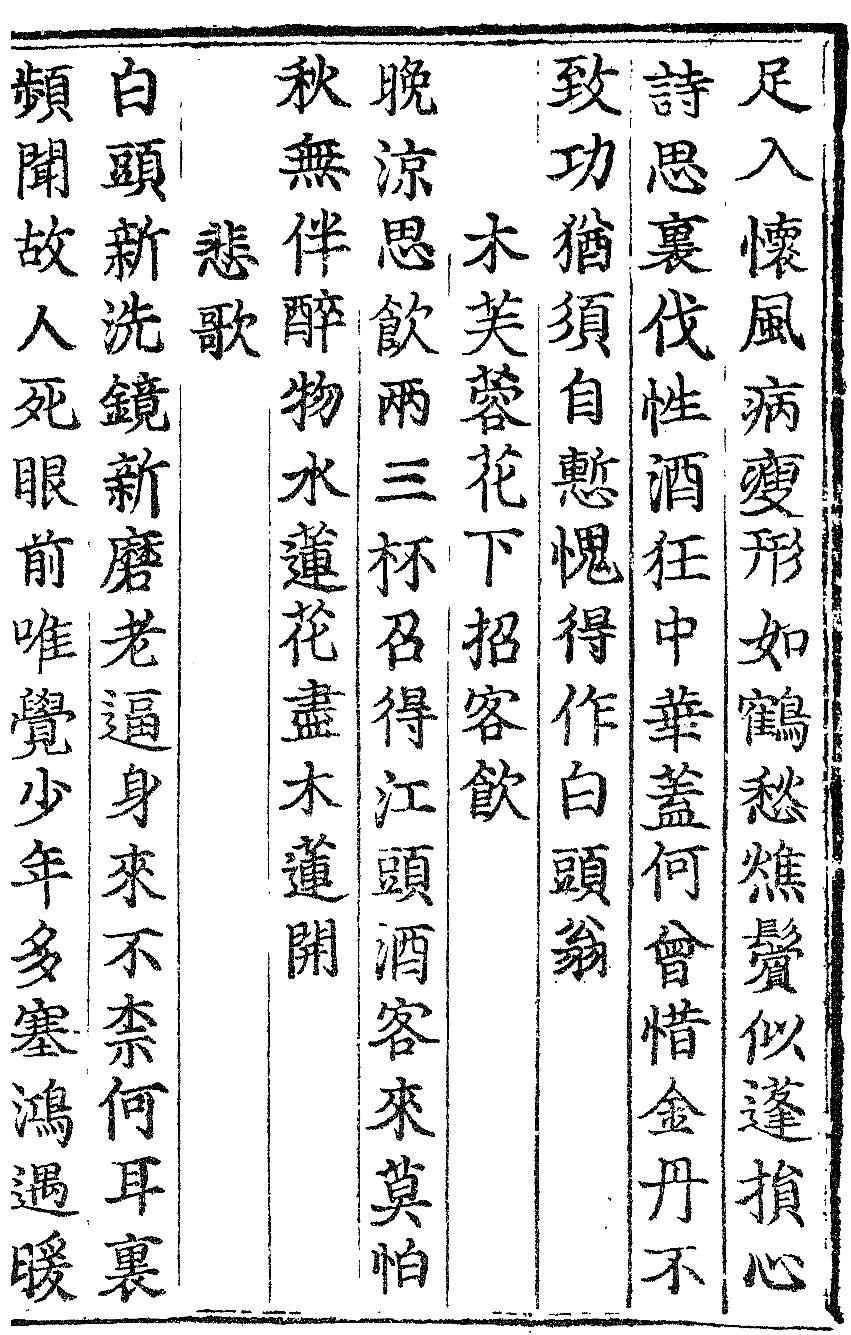 足入懷風病瘦形如鶴愁燋鬢似蓬損心
詩思裏伐性酒狂中華蓋何曾惜金丹不
致功猶須自慙愧得作白頭翁
木芙蓉花下招客飲
晚涼思飲兩三杯召得江頭酒客來莫怕
秋無伴醉物水蓮花盡木蓮開
悲歌
白頭新洗鏡新磨老逼身來不柰何耳裏
頻聞故人死眼前唯覺少年多塞鴻遇暖